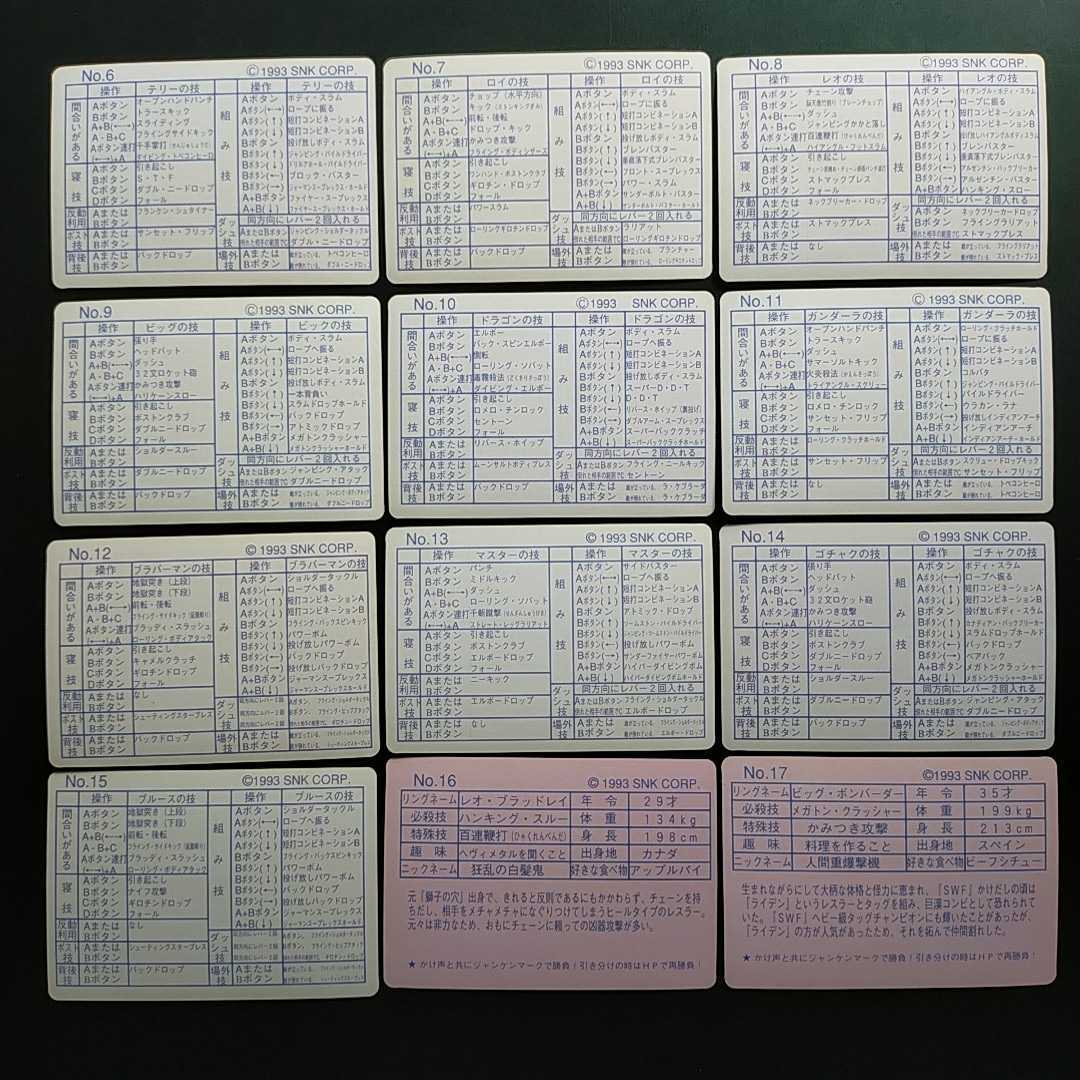 No.6 ©1993 SNK CORP.
操作 テリーの技 操作 テリーの技
間合いがある
Aボタン オープンハンドパンチ
Bボタン トラースキック
A+B(←→) スライディング
A・B+C フライングサイドキック
Aボタン連打
(←→)+A
寝技
Aボタン 引き起こし
Bボタン S・T・F
Cボタン ダブル・ニードロップ
Dボタン フォール
反動利用 Aまたは Bボタン フランケン・シュタイナー
ポスト技 Aまたは Bボタン サンセット・フリップ
背後技 Aまたは Bボタン バックドロップ
組み技
Aボタン ボディ・スラム
Aボタン(←→) ロープに振る
Aボタン(↑) 短打コンビネーションA
Aボタン(↓) 短打コンビネーションB
Bボタン 投げ放しボディ・スラム
Bボタン(↑) ジャンピング・パイルドライバー
Bボタン(←) ブロック・バスター
Bボタン(→) ジャーマンスープレックス・ホールド
A+Bボタン ファイヤー・スープレックス
ダッシュ技 同方向にレバー2回入れる
場外技
No.7 ©1993 SNK CORP.
操作 ロイの技 操作 ロイの技
間合いがある
Aボタン チョップ(水平方向)
A+B(←→) 前転・後転
A・B+C ドロップ・キック
Aボタン連打 かみつき攻撃
寝技
Aボタン 引き起こし
Bボタン ワンハンド・ボストンクラブ
Cボタン ギロチン・ドロップ
Dボタン フォール
反動利用 Aまたは Bボタン パワースラム
ポスト技 Aまたは Bボタン ローリングギロチンドロップ
背後技 Aまたは Bボタン バックドロップ
組み技
Aボタン ボディ・スラム
Aボタン(←→) ロープに振る
Aボタン(↑) 短打コンビネーションA
Aボタン(↓) 短打コンビネーションB
Bボタン 投げ放しボディ・スラム
Bボタン(↑) ブレンバスター
Bボタン(↓) 垂直落下式ブレンバスター
Bボタン(←) フロント・スープレックス
Bボタン(→) パワー・スラム
A+Bボタン サンダーボルト・バスター
ダッシュ技 同方向にレバー2回入れる
ラリアット
ローリングギロチンドロップ
場外技
No.8 ©1993 SNK CORP.
操作 レオの技 操作 レオの技
間合いがある
Aボタン チェーン攻撃
A+B(←→) ダッシュ
A・B+C ジャンピングかかと落し
Aボタン連打 百連鞭打
(←→)+A ハイアングル・フットスラム
寝技
Aボタン 引き起こし
Cボタン ストマックブレス
Dボタン フォール
反動利用 Aまたは Bボタン ネックブリーカー・ドロップ
ポスト技 Aまたは Bボタン ストマックプレス
背後技 Aまたは Bボタン なし
組み技
Aボタン ハイアングル・ボディ・スラム
Aボタン(←→) ロープに振る
Aボタン(↑) 短打コンビネーションA
Aボタン(↓) 短打コンビネーションB
Bボタン(↑) ブレンバスター
Bボタン(↓) 垂直落下式ブレンバスター
Bボタン(←) アルゼンチン・バックブリーカー
A+Bボタン ハンキング・スロー
ダッシュ技 同方向にレバー2回入れる
ネックブリーカードロップ
フライングラリアット
ストマックプレス
場外技
No.9 ©1993 SNK CORP.
操作 ビッグの技 操作 ビックの技
間合いがある
Aボタン 張り手
Bボタン ヘッドバット
A+B(←→) ダッシュ
A・B+C 32文ロケット砲
Aボタン連打 かみつき攻撃
(←→)+A ハリケーンスロー
寝技
Aボタン 引き起こし
Bボタン ボストンクラブ
Cボタン ダブルニードロップ
Dボタン フォール
反動利用 Aまたは Bボタン ショルダースルー
ポスト技 Aまたは Bボタン ダブルニードロップ
背後技 Aまたは Bボタン バックドロップ
組み技
Aボタン ボディ・スラム
Aボタン(←→) ロープへ振る
Aボタン(↑) 短打コンビネーションA
Aボタン(↓) 短打コンビネーションB
Bボタン 投げ放しボディ・スラム
Bボタン(↑) 一本背負い
Bボタン(↓) スラムドロップホールド
Bボタン(←) バックドロップ
Bボタン(→) アトミックドロップ
A+Bボタン メガトンクラッシャー
ダッシュ技 同方向にレバー2回入れる
AまたはBボタン ジャンピング・アタック
ダブルニードロップ
場外技
No.10 ©1993 SNK CORP.
操作 ドラゴンの技 操作 ドラゴンの技
間合いがある
Aボタン エルボー
Bボタン バック・スピンエルボー
A+B(←→) 側転
A・B+C ローリング・ソバット
Aボタン連打 毒霧殺法
(←→)+A ダイビング・エルボー
寝技
Aボタン 引き起こし
Bボタン ロメロ・チンロック
Cボタン セントーン
Dボタン フォール
反動利用 Aまたは Bボタン リバース・ホイップ
ポスト技 Aまたは Bボタン ムーンサルトボディプレス
背後技 Aまたは Bボタン バックドロップ
組み技
Aボタン ボディ・スラム
Aボタン(←→) ロープへ振る
Aボタン(↑) 短打コンビネーションA
Aボタン(↓) 短打コンビネーションB
Bボタン 投げ放しボディ・スラム
Bボタン(↑) スーパーD・D・T
Bボタン(↓) D・D・T
Bボタン(←) リバース・ホイップ(裏投げ)
Bボタン(→) ダブルアーム・スープレックス
A+Bボタン スーパーバッククラッチ
ダッシュ技 同方向にレバー2回入れる
AまたはBボタン フライング・ニールキック
セントーン
場外技 ラ・ケブラーダ
No.11 ©1993 SNK CORP.
操作 ガンダーラの技 操作 ガンダーラの技
間合いがある
Aボタン オープンハンドパンチ
Bボタン トラースキック
A+B(←→) ダッシュ
A・B+C サマーソルトキック
Aボタン連打 火炎殺法
(←→)+A トライアングル・スクリュー
寝技
Aボタン 引き起こし
Bボタン ロメロ・チンロック
Cボタン サンセット・フリップ
Dボタン フォール
反動利用 Aまたは Bボタン ローリング・クラッチホールド
ポスト技 Aまたは Bボタン サンセット・フリップ
背後技 Aまたは Bボタン なし
組み技
Aボタン ローリング・クラッチホールド
Aボタン(←→) ロープへ振る
Aボタン(↑) 短打コンビネーションA
Aボタン(↓) 短打コンビネーションB
Bボタン コルバタ
Bボタン(↑) ジャンピング・パイルドライバー
Bボタン(↓) パイルドライバー
Bボタン(←) ウラカン・ラナ
Bボタン(→) 投げ放しインディアンアーチ
A+Bボタン インディアンアーチ
ダッシュ技 同方向にレバー2回入れる
サンセット・フリップ
場外技
No.12 ©1993 SNK CORP.
操作 ブラバーマンの技 操作 ブラバーマンの技
間合いがある
Aボタン 地獄突き(上段)
Bボタン 地獄突き(下段)
A+B(←→) 前転・後転
Aボタン連打 ブラッディ・スラッシュ
(←→)+A ローリング・ボディアタック
寝技
Aボタン 引き起こし
Bボタン キャメルクラッチ
Cボタン ギロチンドロップ
Dボタン フォール
反動利用 Aまたは Bボタン なし
ポスト技 Aまたは Bボタン シューティングスタープレス
背後技 Aまたは Bボタン バックドロップ
組み技
Aボタン ショルダータックル
Aボタン(←→) ロープへ振る
Aボタン(↑) 短打コンビネーションA
Aボタン(↓) 短打コンビネーションB
Bボタン フライング・バックスピンキック
Bボタン(↑) パワーボム
Bボタン(↓) 投げ放しパワーボム
Bボタン(←) バックドロップ
Bボタン(→) 投げ放しバックドロップ
A+Bボタン ジャーマンスープレックス
ダッシュ技
場外技
No.13 ©1993 SNK CORP.
操作 マスターの技 操作 マスターの技
間合いがある
Aボタン パンチ
Bボタン ミドルキック
A+B(←→) ダッシュ
A・B+C ローリング・ソバット
Aボタン連打 千斬蹴撃
(←→)+A ストレート・レッグラリアット
寝技
Aボタン 引き起こし
Bボタン ボストンクラブ
Cボタン エルボードロップ
Dボタン フォール
反動利用 Aまたは Bボタン ニーキック
ポスト技 Aまたは Bボタン エルボードロップ
背後技 Aまたは Bボタン なし
組み技
Aボタン サイドバスター
Aボタン(←→) ロープへ振る
Aボタン(↑) 短打コンビネーションA
Aボタン(↓) 短打コンビネーションB
Bボタン アトミック・ドロップ
Bボタン(↑) ツームストン・パイルドライバー
Bボタン(←) 投げ放しパワーボム
Bボタン(→) サンダーファイヤーパワーボム
A+Bボタン ハイパーダイビングボム
ダッシュ技 同方向にレバー2回入れる
エルボードロップ
場外技
No.14 ©1993 SNK CORP.
操作 ゴチャクの技 操作 ゴチャクの技
間合いがある
Aボタン 張り手
Bボタン ヘッドバット
A+B(←→) ダッシュ
A・B+C 32文ロケット砲
Aボタン連打 かみつき攻撃
(←→)+A ハリケーンスロー
寝技
Aボタン 引き起こし
Bボタン ボストンクラブ
Cボタン ダブルニードロップ
Dボタン フォール
反動利用 Aまたは Bボタン ショルダースルー
ポスト技 Aまたは Bボタン ダブルニードロップ
背後技 Aまたは Bボタン バックドロップ
組み技
Aボタン ボディ・スラム
Aボタン(←→) ロープへ振る
Aボタン(↑) 短打コンビネーションA
Aボタン(↓) 短打コンビネーションB
Bボタン 投げ放しボディ・スラム
Bボタン(↑) カナディアン・バックブリーカー
Bボタン(↓) スラムドロップホールド
Bボタン(←) バックドロップ
Bボタン(→) ベアバック
A+Bボタン メガトンクラッシャー
ダッシュ技 同方向にレバー2回入れる
ダブルニードロップ
場外技
No.15 ©1993 SNK CORP.
操作 ブルースの技 操作 ブルースの技
間合いがある
Aボタン 地獄突き(上段)
Bボタン 地獄突き(下段)
A+B(←→) 前転・後転
Aボタン連打 ブラッディ・スラッシュ
(←→)+A ローリング・ボディアタック
寝技
Aボタン 引き起こし
Bボタン ナイフ攻撃
Cボタン ギロチンドロップ
Dボタン フォール
反動利用 Aまたは Bボタン なし
ポスト技 Aまたは Bボタン シューティングスタープレス
背後技 Aまたは Bボタン バックドロップ
組み技
Aボタン ショルダータックル
Aボタン(←→) ロープへ振る
Aボタン(↑) 短打コンビネーションA
Aボタン(↓) 短打コンビネーションB
Bボタン フライング・バックスピンキック
Bボタン(↑) パワーボム
Bボタン(↓) 投げ放しパワーボム
Bボタン(←) バックドロップ
Bボタン(→) 投げ放しバックドロップ
A+Bボタン ジャーマンスープレックス
ダッシュ技
場外技
No.16 ©1993 SNK CORP.
リングネーム レオ・ブラッドレイ 年令 29才
必殺技 ハンキング・スルー 体重 134kg
特殊技 百連鞭打(ひゃくれんべんだ) 身長 198cm
趣味 ヘヴィメタルを聞くこと 出身地 カナダ
ニックネーム 狂乱の白髪鬼 好きな食べ物 アップルパイ
元「獅子の穴」出身で、きれると反則であるにもかかわらず、チェーンを持
ちだし、相手をメチャメチャになぐりつけてしまうヒールタイプのレスラー。
元々は非力なため、おもにチェーンに頼っての凶器攻撃が多い。
★かけ声と共にジャンケンマークで勝負!引き分けの時はHPで再勝負!
No.17 ©1993 SNK CORP.
リングネーム ビッグ・ボンバーダー 年令 35才
必殺技 メガトン・クラッシャー 体重 199kg
特殊技 かみつき攻撃 身長 213cm
趣味 料理を作ること 出身地 スペイン
ニックネーム 人間重爆撃機 好きな食べ物 ビーフシチュー
生まれながらにして大柄な体格と怪力に恵まれ、「SWF」かけだしの頃は
「ライデン」というレスラーとタッグを組み、巨漢コンビとして恐れられて
いた。「SWF」ヘビー級タッグチャンピオンにも輝いたことがあったが、
「ライデン」の方が人気があったため、それを妬んで仲間割れした。
★かけ声と共にジャンケンマークで勝負!引き分けの時はHPで再勝負!